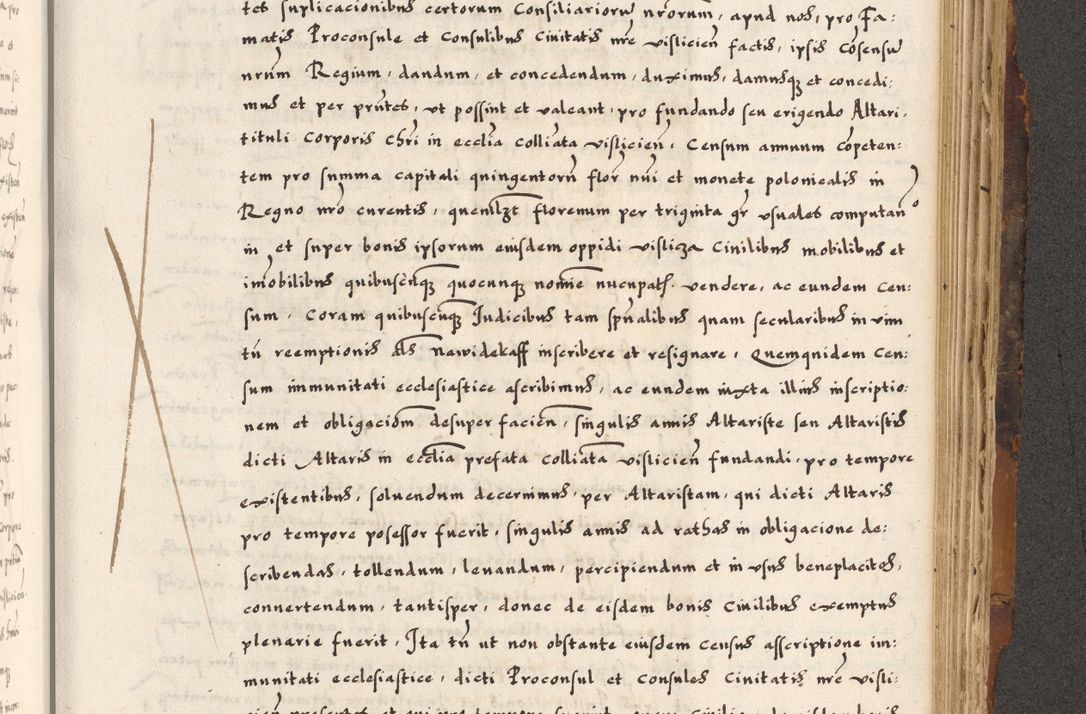 tes suplicacionibus certorum Consiliarioru nrorum, apud nos, pro Fa:
matis Proconsule et Consulibus Ciuitatis nre vislicien factis, ipsis Cosensu
nrum Regium, dandum, et concedendum, duximus, damusq et concedi:
mus et per pntes, vt possint et valeant, pro fundando seu erigendo Altari,
tituli Corporis Chri in ecclia colliata vislicien, Censum annuum copeten:
tem pro summa capitali quingentoru flor nui et monete polonicalis in
Regno nro curentis, florenum per triginta gr vsuales computan
in et super bonis ipsorum eiusdem oppidi vislicza Ciuilibus mobilibus et
imobilibus quibuscuq quocunq nomine nucupats. vendere, ac eundem Cen:
sum, Coram quibuscuq Iudicibus tam spualibus quam secularibus in vim
tn reemptionis als nawidekaff inscribere et resignare, Quemquidem Cen:
sum immunitati ecclesiastice ascribimus, ac eundem iuxta illius inscriptio:
nem et obligaciom desuper facien, singulis annis Altariste seu Altaristis
dicti Altaris in ecclia prefata colliata vislicien fundandi, pro tempore
existentibus, soluendum decernimus, per Altaristam, qui dicti Altaris
pro tempore posessor fuerit, singulis annis ad rathas in obligacione de:
scribendas, tollendum, leuandum, percipiendum et in vsus beneplacitos,
conuertendum, tantisper, donec de eisdem bonis Ciuilibus exemptus
plenarie fuerit, Ita tn ut non obstante eiusdem census asscriptione im:
munitati ecclesiastice, dicti Proconsul et Consules Ciuitatis nre visli: